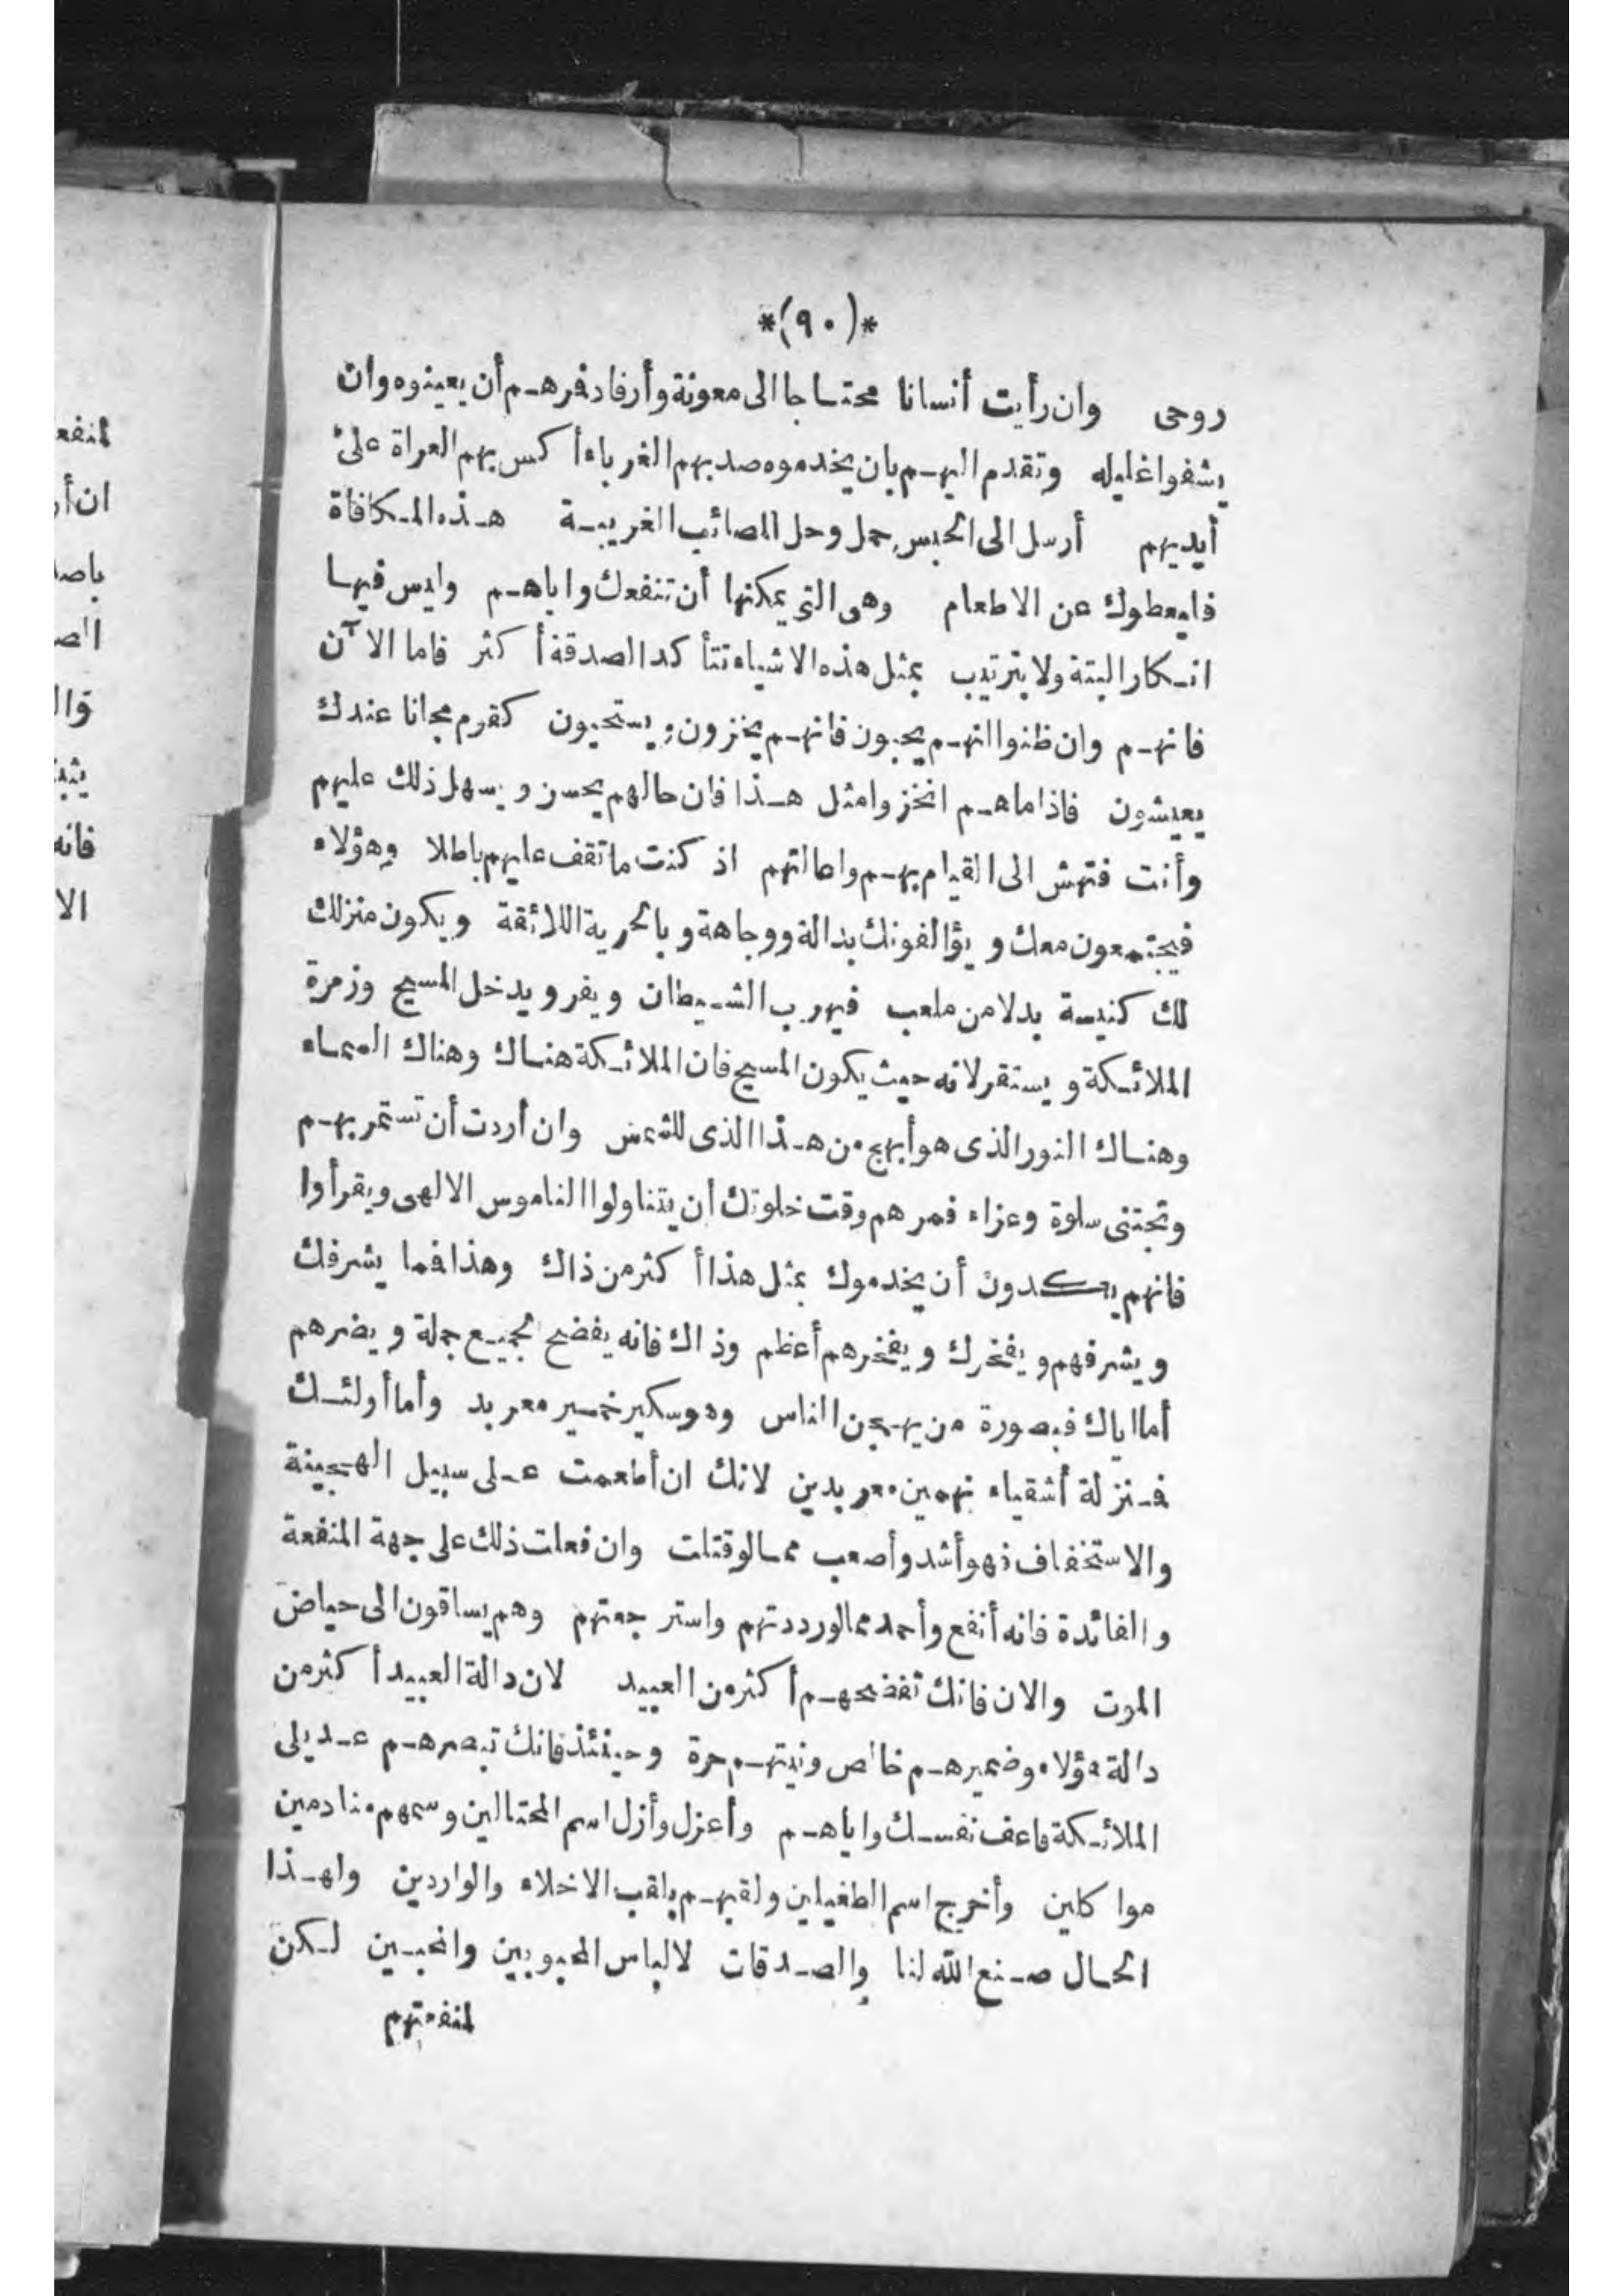 *(٩٠)*
روحى وان رأيت أنسانا محتاجا الى معونة وأرفاد فرهم أن يعينوه وان
يشفوا غليله وتقدم اليهم بان يخدموه صد بهم الغرباء أكس بهم العراة على
أيديهم أرسل الى الحبس حمل وحل المصائب الغريبة هذه المكافاة
فليعطوك عن الاطعام وهى التى يمكنها أن تنفعك واياهم وليس فيها
انكار البتة ولا بترتيب بمثل هذه الاشياء تتأكد الصدقة أكثر فاما الآن
فانهم وان ظنوا انهم يحبون فانهم يخزون ويستحيون كقوم مجانا عندك
يعيشون فاذا ماهم انخزوا مثل هذا فان حالهم يحسن ويسهل ذلك عليهم
وأنت فتهش الى القيام بهم واعالتهم اذ كنت ما تقف عليهم باطلا وهؤلاء
فيجتمعون معك ويؤالفونك بدالة ووجاهة وبالحرية اللائقة ويكون منزلك
لك كنيسة بدلا من ملعب فيهرب الشيطان ويفر ويدخل المسيح وزمرة
الملائكة ويستقر لانه حيث يكون المسيح فان الملائكة هناك وهناك السماء
وهناك النور الذى هو أبهج من هذا الذى للشمس وان أردت أن تستمر بهم
وتجتنى سلوة وعزاء فمرهم وقت خلوتك أن يتناولوا الناموس الالهى ويقرأوا
فانهم يكدون أن يخدموك بمثل هذا أكثر من ذاك وهذا فما يشرفك
ويشرفهم ويفخرك ويفخرهم أعظم وذاك فانه يفضح الجميع جملة ويضرهم
أما اياك فبصورة من يهجن الناس وهو سكير خمير معربد وأما أولئك
فمنزلة أشقياء نهمين معربدين لانك ان أطعمت على سبيل الهجينة
والاستخفاف فهو أشد وأصعب مما لو قتلت وان فعلت ذلك على جهة المنفعة
والفائدة فانه أنفع وأحمد مما لو رددتهم واسترجعتهم وهم يساقون الى حياض
الموت والان فانك تفضحهم أكثر من العبيد لان دالة العبيد أكثر من
دالة هؤلاء وضميرهم خالص ونيتهم حرة وحينئذ فانك تبصرهم عديلى
الملائكة فاعف نفسك واياهم وأعزل وأزل اسم المحتالين وسمهم منادمين
مواكلين وأخرج اسم الطفيلين ولقبهم بلقب الاخلاء والواردين ولهذا
الحال صنع الله لنا والصدقات لا لباس المحبوبين والمحبين لكن
لمنفعتهم